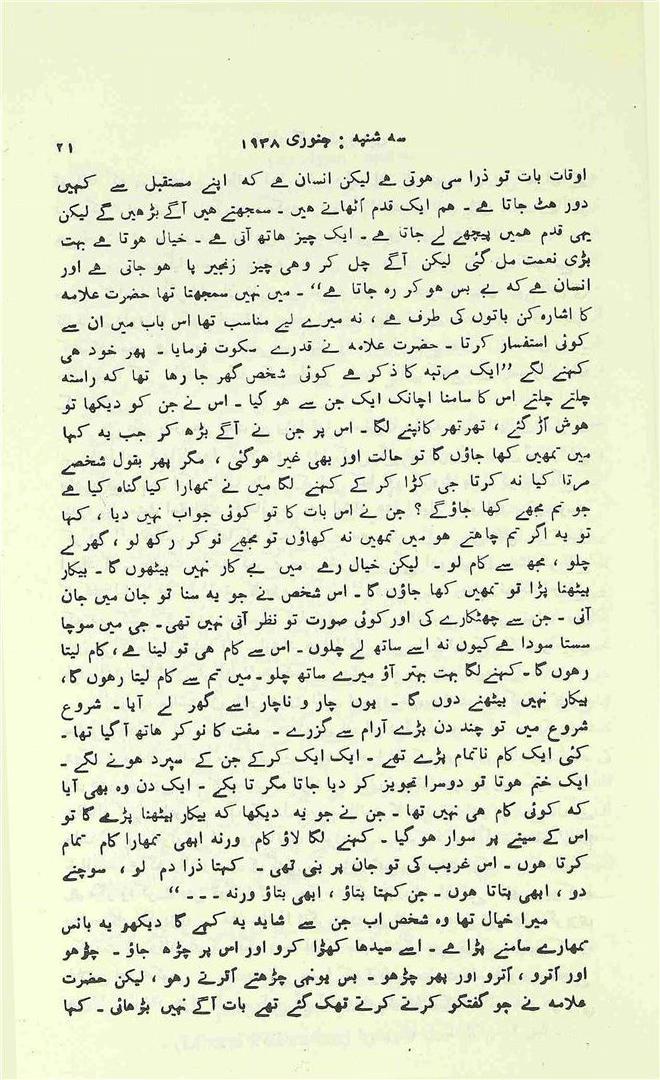 سہ شنبہ : جنوری ۱۹۳۸ ۲۱
اوقات بات تو ذرا سی ہوتی ہے لیکن انسان ہے کہ اپنے مستقبل سے کہیں
دور ہٹ جاتا ہے ۔ ہم ایک قدم اُٹھاتے ہیں ۔ سمجھتے ہیں آگے بڑھیں گے لیکن
یہی قدم ہمیں پیچھے لے جاتا ہے ۔ ایک چیز ہاتھ آتی ہے ۔ خیال ہوتا ہے بہت
بڑی نعمت مل گئی لیکن آگے چل کر وہی چیز زنجیر پا ہو جاتی ہے اور
انسان ہے کہ بے بس ہو کر رہ جاتا ہے“ ۔ میں نہیں سمجھتا تھا حضرت علامہ
کا اشارہ کن باتوں کی طرف ہے ، نہ میرے لیے مناسب تھا اس باب میں ان سے
کوئی استفسار کرتا ۔ حضرت علامہ نے قدرے سکوت فرمایا ۔ پھر خود ہی
کہنے لگے ”ایک مرتبہ کا ذکر ہے کوئی شخص گھر جا رہا تھا کہ راستہ
چلتے چلتے اس کا سامنا اچانک ایک جن سے ہو گیا ۔ اس نے جن کو دیکھا تو
ہوش اُڑ گئے ، تھرتھر کانپنے لگا ۔ اس پر جن نے آگے بڑھ کر جب یہ کہا
میں تمھیں کھا جاؤں گا تو حالت اور بھی غیر ہوگئی ، مگر پھر بقول شخصے
مرتا کیا نہ کرتا جی کڑا کر کے کہنے لگا میں نے تمھارا کیا گناہ کیا ہے
جو تم مجھے کھا جاؤگے ؟ جن نے اس بات کا تو کوئی جواب نہیں دیا ، کہا
تو یہ اگر تم چاہتے ہو میں تمھیں نہ کھاؤں تو مجھے نوکر رکھ لو ، گھر لے
چلو ، مجھ سے کام لو ۔ لیکن خیال رہے میں بے کار نہیں بیٹھوں گا ۔ بیکار
بیٹھنا پڑا تو تمھیں کھا جاؤں گا ۔ اس شخص نے جو یہ سنا تو جان میں جان
آئی ۔ جن سے چھٹکارے کی اور کوئی صورت تو نظر آتی نہیں تھی ۔ جی میں سوچا
سستا سودا ہے کیوں نہ اسے ساتھ لے چلوں ۔ اس سے کام ہی تو لینا ہے ، کام لیتا
رہوں گا ۔ کہنے لگا بہت بہتر آؤ میرے ساتھ چلو ۔ میں تم سے کام لیتا رہوں گا ،
بیکار نہیں بیٹھنے دوں گا ۔ یوں چار و ناچار اسے گھر لے آیا ۔ شروع
شروع میں تو چند دن بڑے آرام سے گزرے ۔ مفت کا نوکر ہاتھ آ گیا تھا ۔
کئی ایک کام ناتمام پڑے تھے ۔ ایک ایک کرکے جن کے سپرد ہونے لگے ۔
ایک ختم ہوتا تو دوسرا تجویز کر دیا جاتا مگر تا بکے ۔ ایک دن وہ بھی آیا
کہ کوئی کام ہی نہیں تھا ۔ جن نے جو یہ دیکھا کہ بیکار بیٹھنا پڑے گا تو
اس کے سینے پر سوار ہو گیا ۔ کہنے لگا لاؤ کام ورنہ ابھی تمھارا کام تمام
کرتا ہوں ۔ اس غریب کی تو جان پر بنی تھی ۔ کہتا ذرا دم لو ، سوچنے
دو ، ابھی بتاتا ہوں ۔ جن کہتا بتاؤ ، ابھی بتاؤ ورنہ ۔ ۔ ۔ “
میرا خیال تھا وہ شخص اب جن سے شاید یہ کہے گا دیکھو یہ بانس
تمھارے سامنے پڑا ہے ۔ اسے سیدھا کھڑا کرو اور اس پر چڑھ جاؤ ۔ چڑھو
اور اُترو ، اُترو اور پھر چڑھو ۔ بس یونہی چڑھتے اُترتے رہو ، لیکن حضرت
علامہ نے جو گفتگو کرتے کرتے تھک گئے تھے بات آگے نہیں بڑھائی ۔ کہا